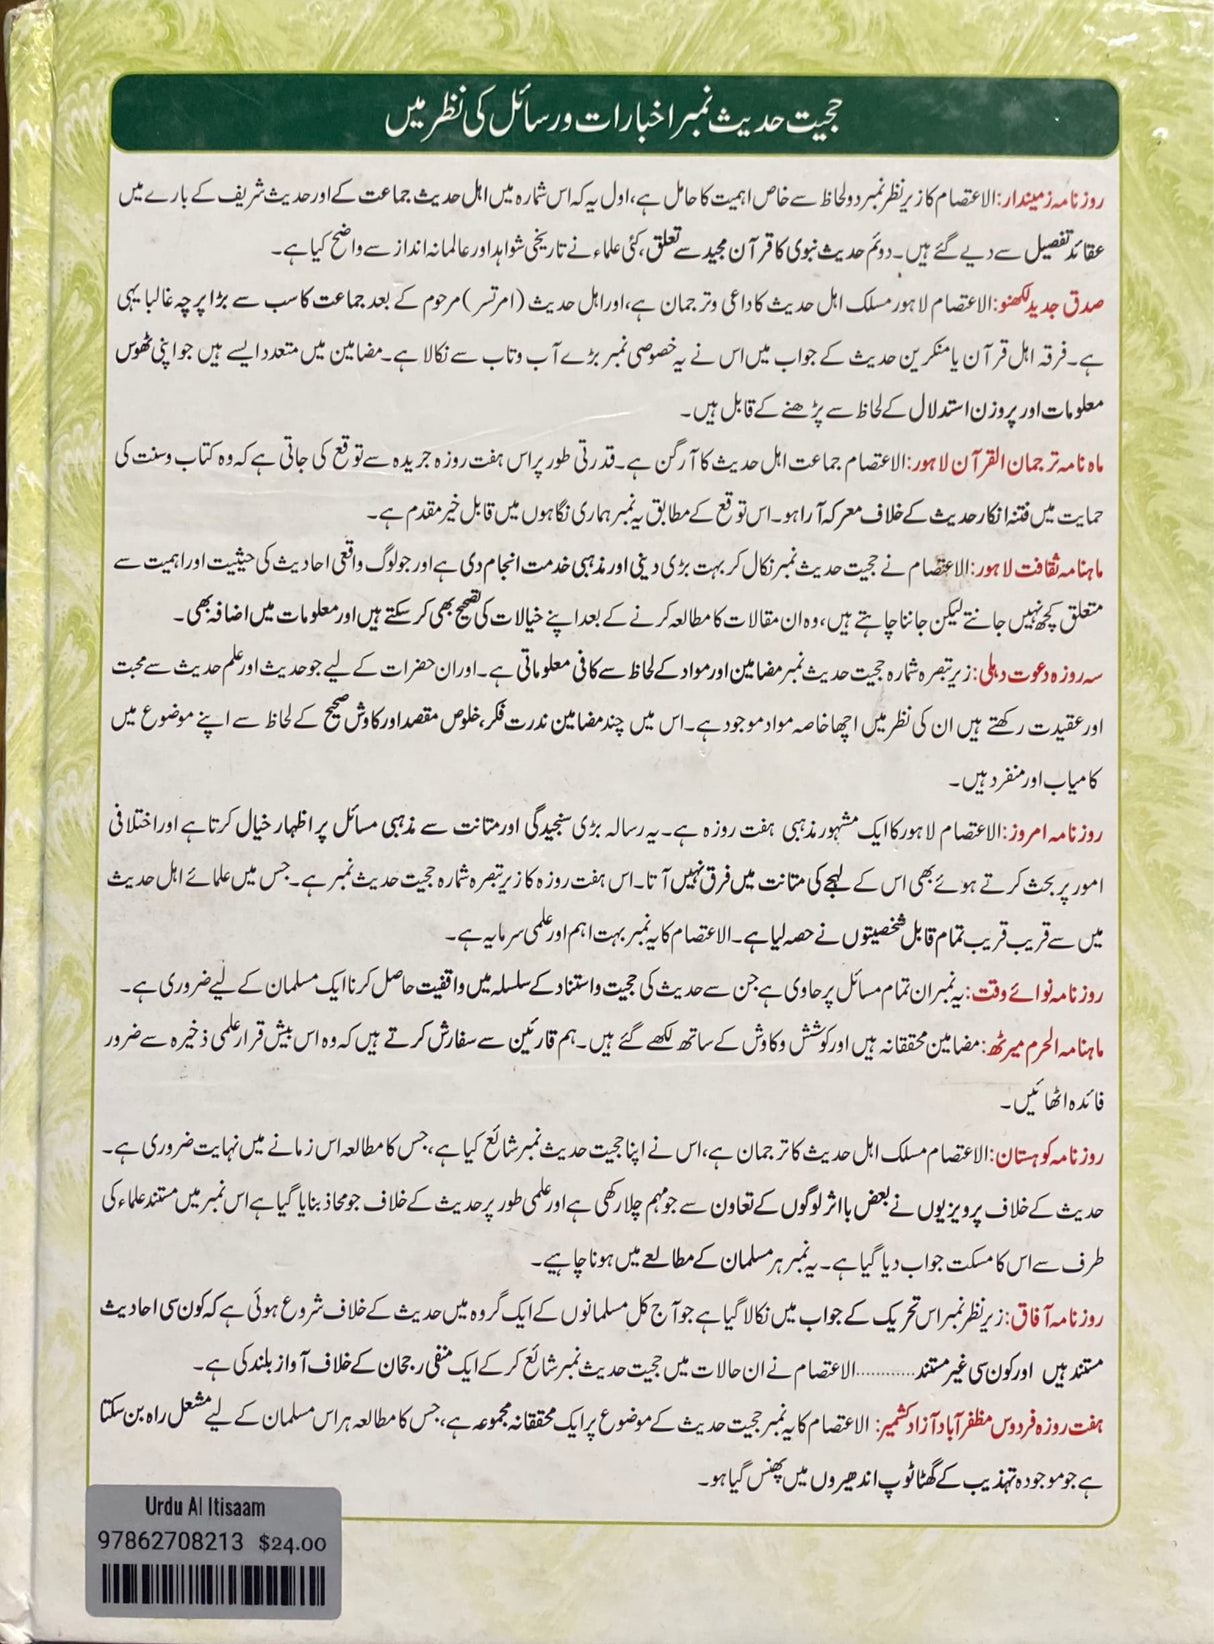 حجیت حدیث نمبر اخبارات و رسائل کی نظر میں
روزنامہ زمیندار: الاعتصام کا زیر نظر نمبر دو لحاظ سے خاص اہمیت کا حامل ہے، اول یہ کہ اس شمارہ میں اہل حدیث جماعت کے اور حدیث شریف کے بارے میں
عقائد تفصیل سے دیے گئے ہیں۔ دوئم حدیث نبوی کا قرآن مجید سے تعلق، کئی علماء نے تاریخی شواہد اور عالمانہ انداز سے واضح کیا ہے۔
صدق جدید لکھنو: الاعتصام لاہور مسلک اہل حدیث کا داعی و ترجمان ہے، اور اہل حدیث (امرتسر) مرحوم کے بعد جماعت کا سب سے بڑا پرچہ غالبا یہی
ہے۔ فرقہ اہل قرآن یا منکرین حدیث کے جواب میں اس نے یہ خصوصی نمبر بڑے آب و تاب سے نکالا ہے۔ مضامین میں متعدد ایسے ہیں جو اپنی ٹھوس
معلومات اور پروزن استدلال کے لحاظ سے پڑھنے کے قابل ہیں۔
ماہ نامہ ترجمان القرآن لاہور: الاعتصام جماعت اہل حدیث کا آرگن ہے۔ قدرتی طور پر اس ہفت روزہ جریدہ سے توقع کی جاتی ہے کہ وہ کتاب وسنت کی
حمایت میں فتنہ انکار حدیث کے خلاف معرکہ آرا ہو۔ اس توقع کے مطابق یہ نمبر ہماری نگاہوں میں قابل خیر مقدم ہے۔
ماہنامہ ثقافت لاہور: الاعتصام نے حجیت حدیث نمبر نکال کر بہت بڑی دینی اور مذہبی خدمت انجام دی ہے اور جو لوگ واقعی احادیث کی حیثیت اور اہمیت سے
متعلق کچھ نہیں جانتے لیکن جاننا چاہتے ہیں، وہ ان مقالات کا مطالعہ کرنے کے بعد اپنے خیالات کی تصحیح بھی کر سکتے ہیں اور معلومات میں اضافہ بھی۔
سہ روزہ دعوت دہلی: زیر تبصرہ شمارہ حجیت حدیث نمبر مضامین اور مواد کے لحاظ سے کافی معلوماتی ہے۔ اور ان حضرات کے لیے جو حدیث اور علم حدیث سے محبت
اور عقیدت رکھتے ہیں ان کی نظر میں اچھا خاصہ مواد موجود ہے۔ اس میں چند مضامین ندرت فکر، خلوص مقصد اور کاوش صحیح کے لحاظ سے اپنے موضوع میں
کامیاب اور منفرد ہیں۔
روزنامہ امروز: الاعتصام لاہور کا ایک مشہور مذہبی ہفت روزہ ہے۔ یہ رسالہ بڑی سنجیدگی اور متانت سے مذہبی مسائل پر اظہار خیال کرتا ہے اور اختلافی
امور پر بحث کرتے ہوئے بھی اس کے لہجے کی متانت میں فرق نہیں آتا۔ اس ہفت روزہ کا زیر تبصرہ شمارہ حجیت حدیث نمبر ہے۔ جس میں علمائے اہل حدیث
میں سے قریب قریب تمام قابل شخصیتوں نے حصہ لیا ہے۔ الاعتصام کا یہ نمبر بہت اہم اور علمی سرمایہ ہے۔
روزنامہ نوائے وقت: یہ نمبر ان تمام مسائل پر حاوی ہے جن سے حدیث کی حجیت و استناد کے سلسلہ میں واقفیت حاصل کرنا ایک مسلمان کے لیے ضروری ہے۔
ماہنامہ الحرم میرٹھ: مضامین محققانہ ہیں اور کوشش و کاوش کے ساتھ لکھے گئے ہیں۔ ہم قارئین سے سفارش کرتے ہیں کہ وہ اس بیش قرار علمی ذخیرہ سے ضرور
فائدہ اٹھائیں۔
روزنامہ کوہستان: الاعتصام مسلک اہل حدیث کا ترجمان ہے، اس نے اپنا حجیت حدیث نمبر شائع کیا ہے، جس کا مطالعہ اس زمانے میں نہایت ضروری ہے۔
حدیث کے خلاف پرویزیوں نے بعض بااثر لوگوں کے تعاون سے جو مہم چلا رکھی ہے اور علمی طور پر حدیث کے خلاف جو محاذ بنایا گیا ہے اس نمبر میں مستند علماء کی
طرف سے اس کا مسکت جواب دیا گیا ہے۔ یہ نمبر ہر مسلمان کے مطالعے میں ہونا چاہیے۔
روزنامہ آفاق: زیر نظر نمبر اس تحریک کے جواب میں نکالا گیا ہے جو آج کل مسلمانوں کے ایک گروہ میں حدیث کے خلاف شروع ہوئی ہے کہ کون سی احادیث
مستند ہیں اور کون سی غیر مستند............الاعتصام نے ان حالات میں حجیت حدیث نمبر شائع کر کے ایک منفی رجحان کے خلاف آواز بلند کی ہے۔
ہفت روزہ فردوس مظفر آباد آزاد کشمیر: الاعتصام کا یہ نمبر حجیت حدیث کے موضوع پر ایک محققانہ مجموعہ ہے، جس کا مطالعہ ہر اس مسلمان کے لیے مشعل راہ بن سکتا
ہے جو موجودہ تہذیب کے گھٹا ٹوپ اندھیروں میں پھنس گیا ہو۔
Urdu Al Itisaam
97862708213 $24.00